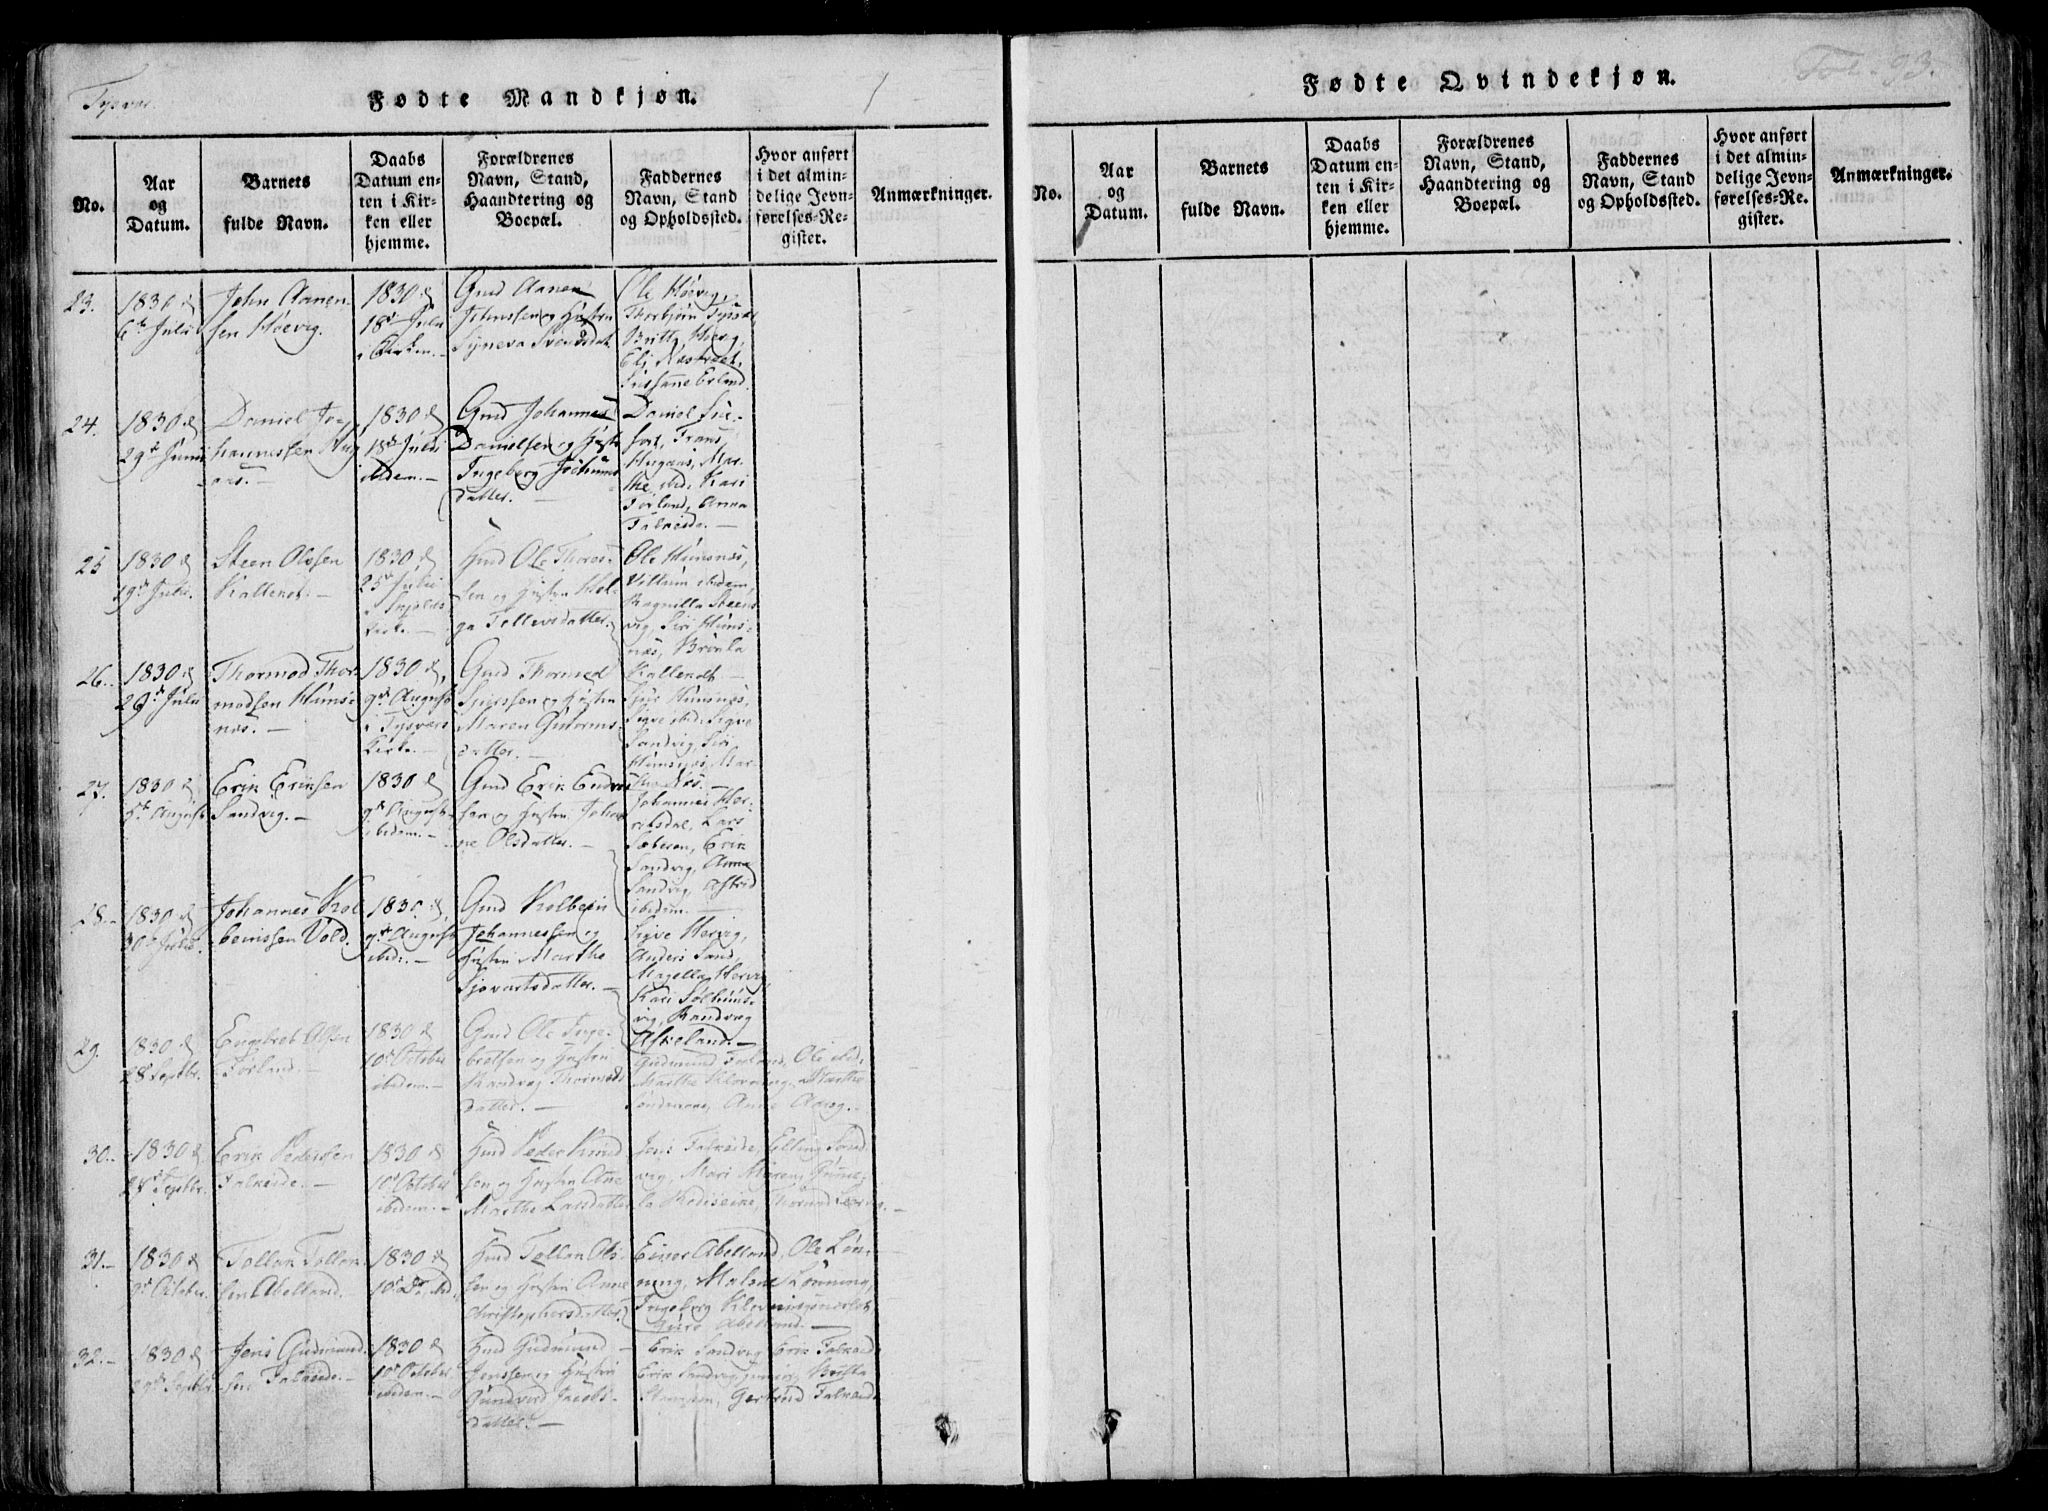 Tysvær.
Fødte Mandkjøn.
No.
Aar
og
Datum.
Barnets
fulde Navn.
Daabs
Datum en-
ten i Kir-
ken eller
hjemme.
Forældrenes
Navn, Stand,
Haandtering og
Boepæl.
Faddernes
Navn, Stand
og Opholdssted.
Hvor anført
i det almin-
delige Jevn-
førelses-Re-
gister.
Anmærkninger.
23.
1830 d
6te Juli
John Aanen-
sen Høevig.
1830 d
18de Juli
i Kirken.
Gmd Aanen
Johnssen og Hustru
Syneva Svensdat.
Ole Høevig,
Thorbjørn Tysvær,
Britta Høevig,
Eli
Susanne Erland.
24.
1830 d
29de Junii
Daniel Jo-
hannessen Aug-
1830 d
18de Juli
ibidem.
Gmd Johannes
Danielsen og Hustru
Ingeborg Jochums
datter.
Daniel
Frans
Mar-
the ibid: Kari
Førland, Anna
Falkeide.
25
1830 d
19de Juli.
Steen Olssen
Kallendt.
1830 d
25de Juli
i Skjolds
Kirke.
Hmd Ole Thores-
sen og Hustru Hel-
ga Tollevsdatter.
Ole Humsnæs,
Villum ibidem,
Ragnilla Steens-
vig, Siri Hums-
næs, Brønla
Kallendt.
26.
1830 d
29de Juli
Thormod Thor-
modsen Hums-
næs.
1830 d
9de August
i Tysvær
Kirke.
Gmd Thormod
Sjurssen og Hustru
Maren Guttorms-
datter.
Sjur Humsnæs,
Sigve ibid: Sigve
Sandvig, Siri
Humsnæs, Mar-
tha Næs.
27.
1830 d
5te August
Erik Eriksen
Sandvig.
1830 d
9de August
ibidem.
Gmd Erik Endres
sen og Hustru Johan-
ne Olsdatter.
Johannes Her-
vigsdal, Lars
Sæbøen, Erik
Sandvig, Anna
Sandvig, Astrid
ibidem.
28.
1830 d
30te Julii.
Johannes Kol-
beinssen Vold.
1830 d
9de August
ibid:
Gmd Kolbein
Johannessen og
Hustru Marthe
Sjovartsdatter.
Sigve Hervig,
Anders Sand,
Magella Hervig,
Kari Solhims-
vig, Randveg
Askeland.
29.
1830 d
28 Septbr.
Engebret Olsen
Førland.
1830 d
10de October
ibidem.
Gmd Ole Inge-
bretsen og Hustru
Randveg Thormods
datter.
Gudmund Førland, Ole ibid.
Marthe Kloevning, Marthe
Anne
30.
1830 d
28de Septbr.
Erik Pedersen
Falkeide.
1830 d
10de October
ibidem.
Hmd Peder Knud
sen og Hustru Ane
Marthe Larsdatter
Jens Falkeide, Elling Sand-
vig, Mari Maren, Gunne-
la
31.
1830 d
3de October.
Tollak Tollak-
sen Abelland.
1830 d
10de Do, ibid.
Hmd Tollak Ols-
sen og Hustru Anne
Christophersdatter.
Einer Abelland, Ole Løn-
ning, Malene Lønning,
Ingeborg Kloevningsnæstet
Guro Abelland.
32.
1830 d
29de Septbr.
Jens Gudmund-
sen Falkeide.
1830 d
10de October
ibidem.
Hmd Gudmund
Jenssen og Hustru
Gunvord Jacobs-
datter.
Erik Sandvig Erik Falkeid
Erik Sandvig junior, Britha
Gertrud Falkeide
Fol. 93.
Fødte Qvindekjøn.
No.
Aar
og
Datum.
Barnets
fulde Navn.
Daabs
Datum en-
ten i Kir-
ken eller
hjemme.
Forældrenes
Navn, Stand,
Haandtering og
Boepæl.
Faddernes
Navn, Stand
og Opholdssted.
Hvor anført
i det almin-
delige Jevn-
førelses-Re-
gister.
Anmærkninger.